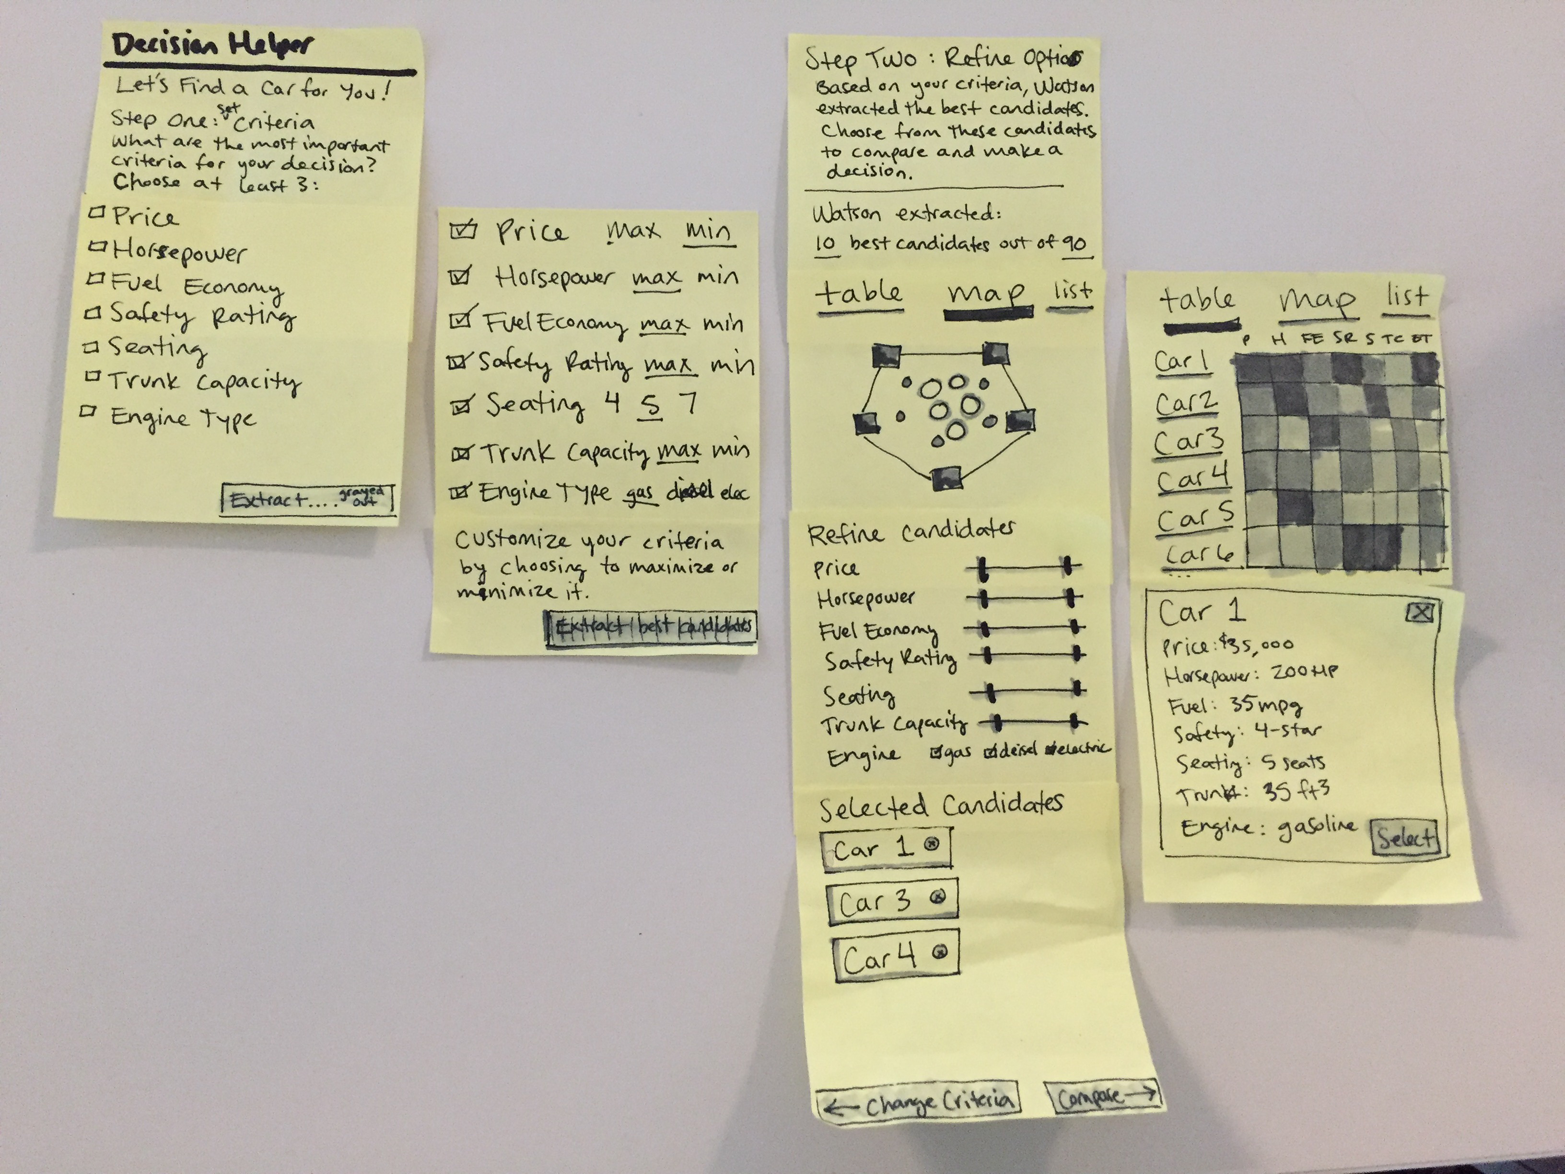 Decision Helper
Let's Find a Car for You!
Step One: set Criteria
What are the most important
criteria for your decision?
Choose at least 3:
Price
Horsepower
Fuel Economy
Safety Rating
Seating
Trunk Capacity
Engine Type
Extract.... grayed out
Price max min
Horsepower max min
Fuel Economy max min
Safety Rating max min
Seating 4 5 7
Trunk Capacity max min
Engine Type gas diesel elec
Customize your criteria
by choosing to maximize or
minimize it.
Extract best candidates
Step Two: Refine Optios
Based on your criteria, Watson
extracted the best candidates.
Choose from these candidates
to compare and make a
decision.
Watson extracted:
10 best candidates out of 90
table map list
Refine Candidates
Price
Horsepower
Fuel Economy
Safety Rating
Seating
Trunk Capacity
Engine gas deisel electric
Selected Candidates
Car 1
Car 3
Car 4
← Change Criteria
Compare →
table map list
P H FE SR S TC ET
Car 1
Car 2
Car 3
Car 4
Car 5
Car 6
...
Car 1 X
Price: $35,000
Horsepower: 200 HP
Fuel: 35 mpg
Safety: 4-star
Seating: 5 seats
Trunk: 35 ft3
Engine: gasoline
Select